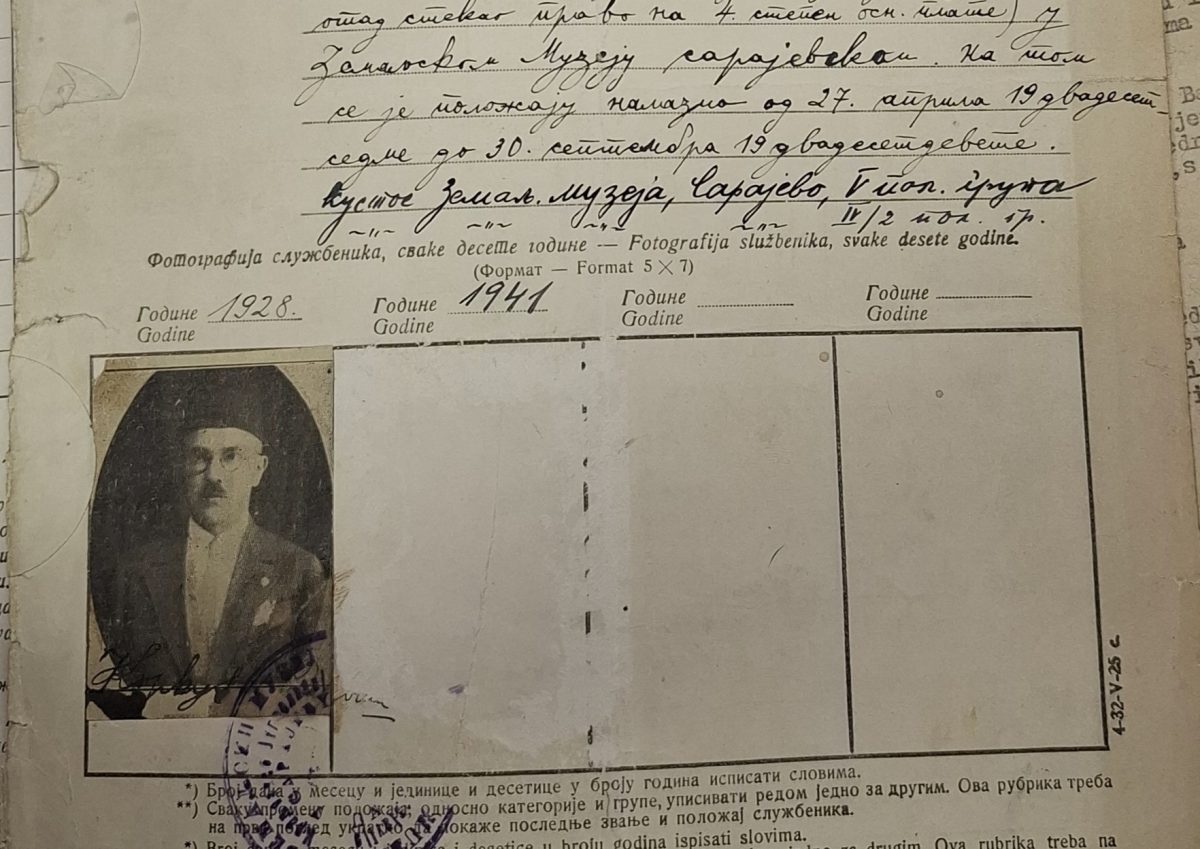 отад стекао право на 4. степен осн. плате) у
Земаљском Музеју сарајевском. На том
се је положају налазио од 27. априла 19 двадесет
седме до 30. септембра 19 двадесетдевете.
Кустос Земаљ. Музеја, Сарајево, V пол. група
〃 〃 〃 〃 IV/2 пол. гр.
Фотографија службеника, сваке десете године — Fotografija službenika, svake desete godine.
(Формат — Format 5 × 7)
Године 1928. Године 1941 Године Године
Godine Godine Godine Godine
4-32-V-25 с.
*) Број дана у месецу и јединице и десетице у броју година исписати словима.
**) Сваку промену положаја, односно категорије и групе, уписивати редом једно за другим. Ова рубрика треба
на први поглед укратко да покаже последње звање и положај службеника.
*) Broj i desetice u broju godina ispisati slovima.
za drugim. Ova rubrika treba na